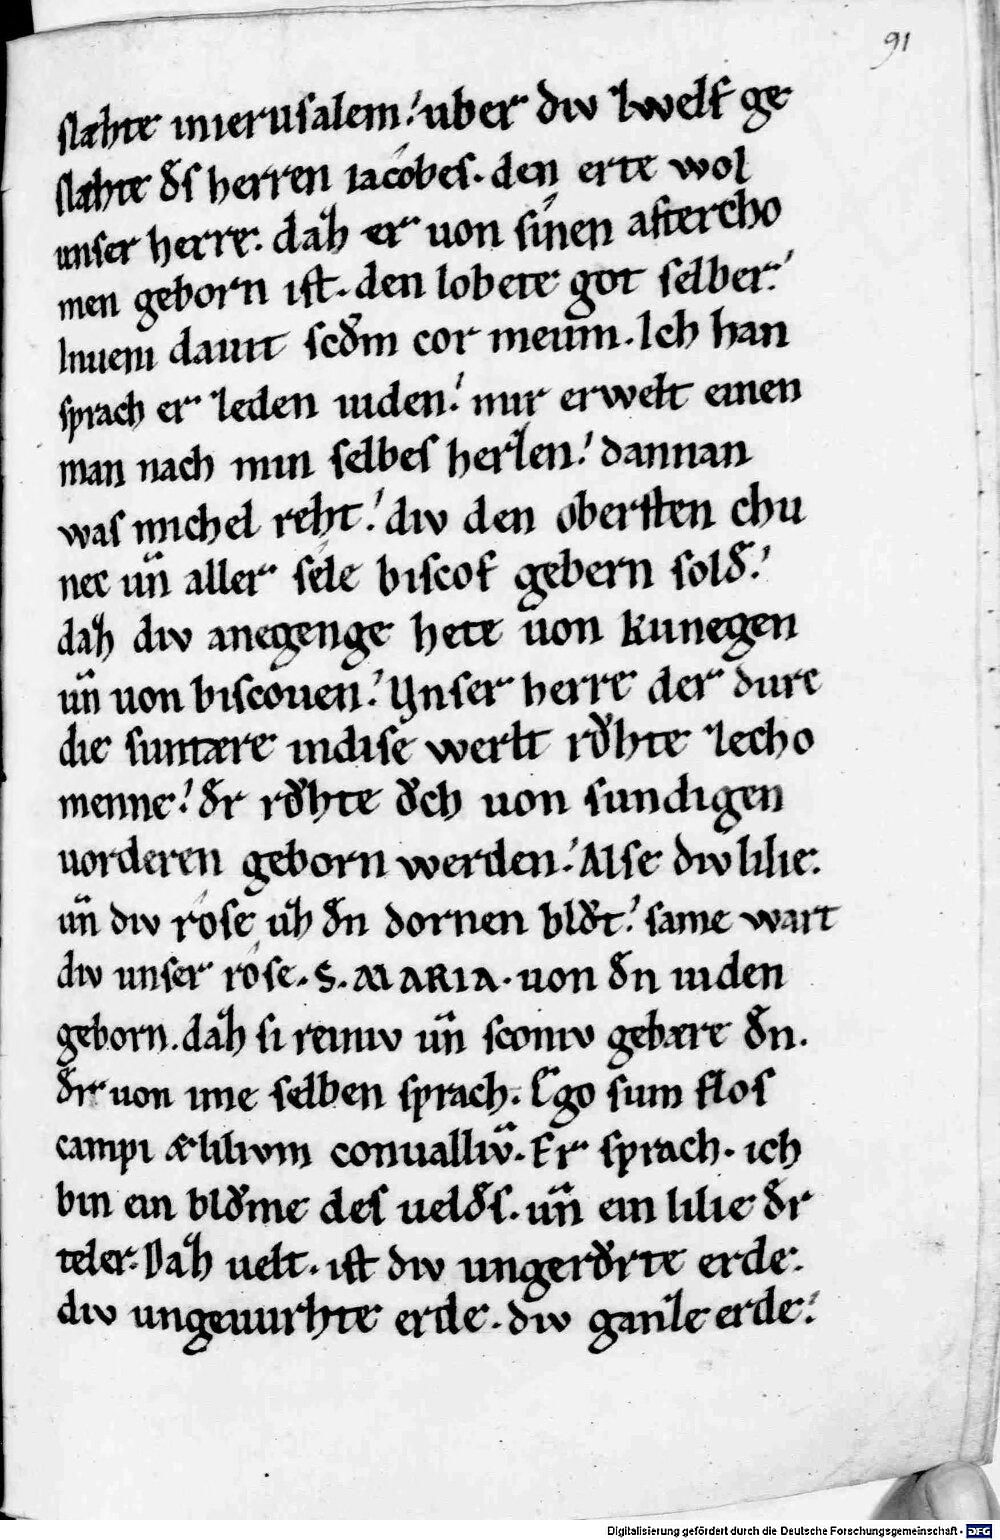 91
slæhte inierusalem. uber div zwelf ge
slæhte dͤs herren iacóbes. den erte wol
unser herre. daz er uon sínen aftercho
men geborn ist. den lobete got selber.
Inueni dauit scdͤm cor meum. Ich han
sprach er zeden iuden. mir erwelt einen
man nach min selbes herzen. dannan
was michel reht. div den obersten chu
nec uñ aller séle biscof gebern soldͤ.
daz div anegenge hete uon kunegen
uñ uon biscouen. Vnser herre der durc
die suntære indise werlt rǒhte zecho
menne. dͤr rǒhte ǒch uon sundigen
uorderen geborn werden. Alse div lilie.
uñ div róse uz dͤn dornen blǒt. same wart
div unser róse. S. MARIA. uon dͤn iuden
geborn. daz si reiniv uñ sconiv gebære dͤn.
dͤr uon ime selben sprach. Ego sum flos
campi & lilivm conualliv̄. Er sprach. ich
bin ein blǒme des ueldͤs. uñ ein lilie dͤr
teler. Daz uelt. ist div ungerǒrte erde.
div ungewurhte erde. div ganze erde.
Digitalisierung gefördert durch die Deutsche Forschungsgemeinschaft - DFG